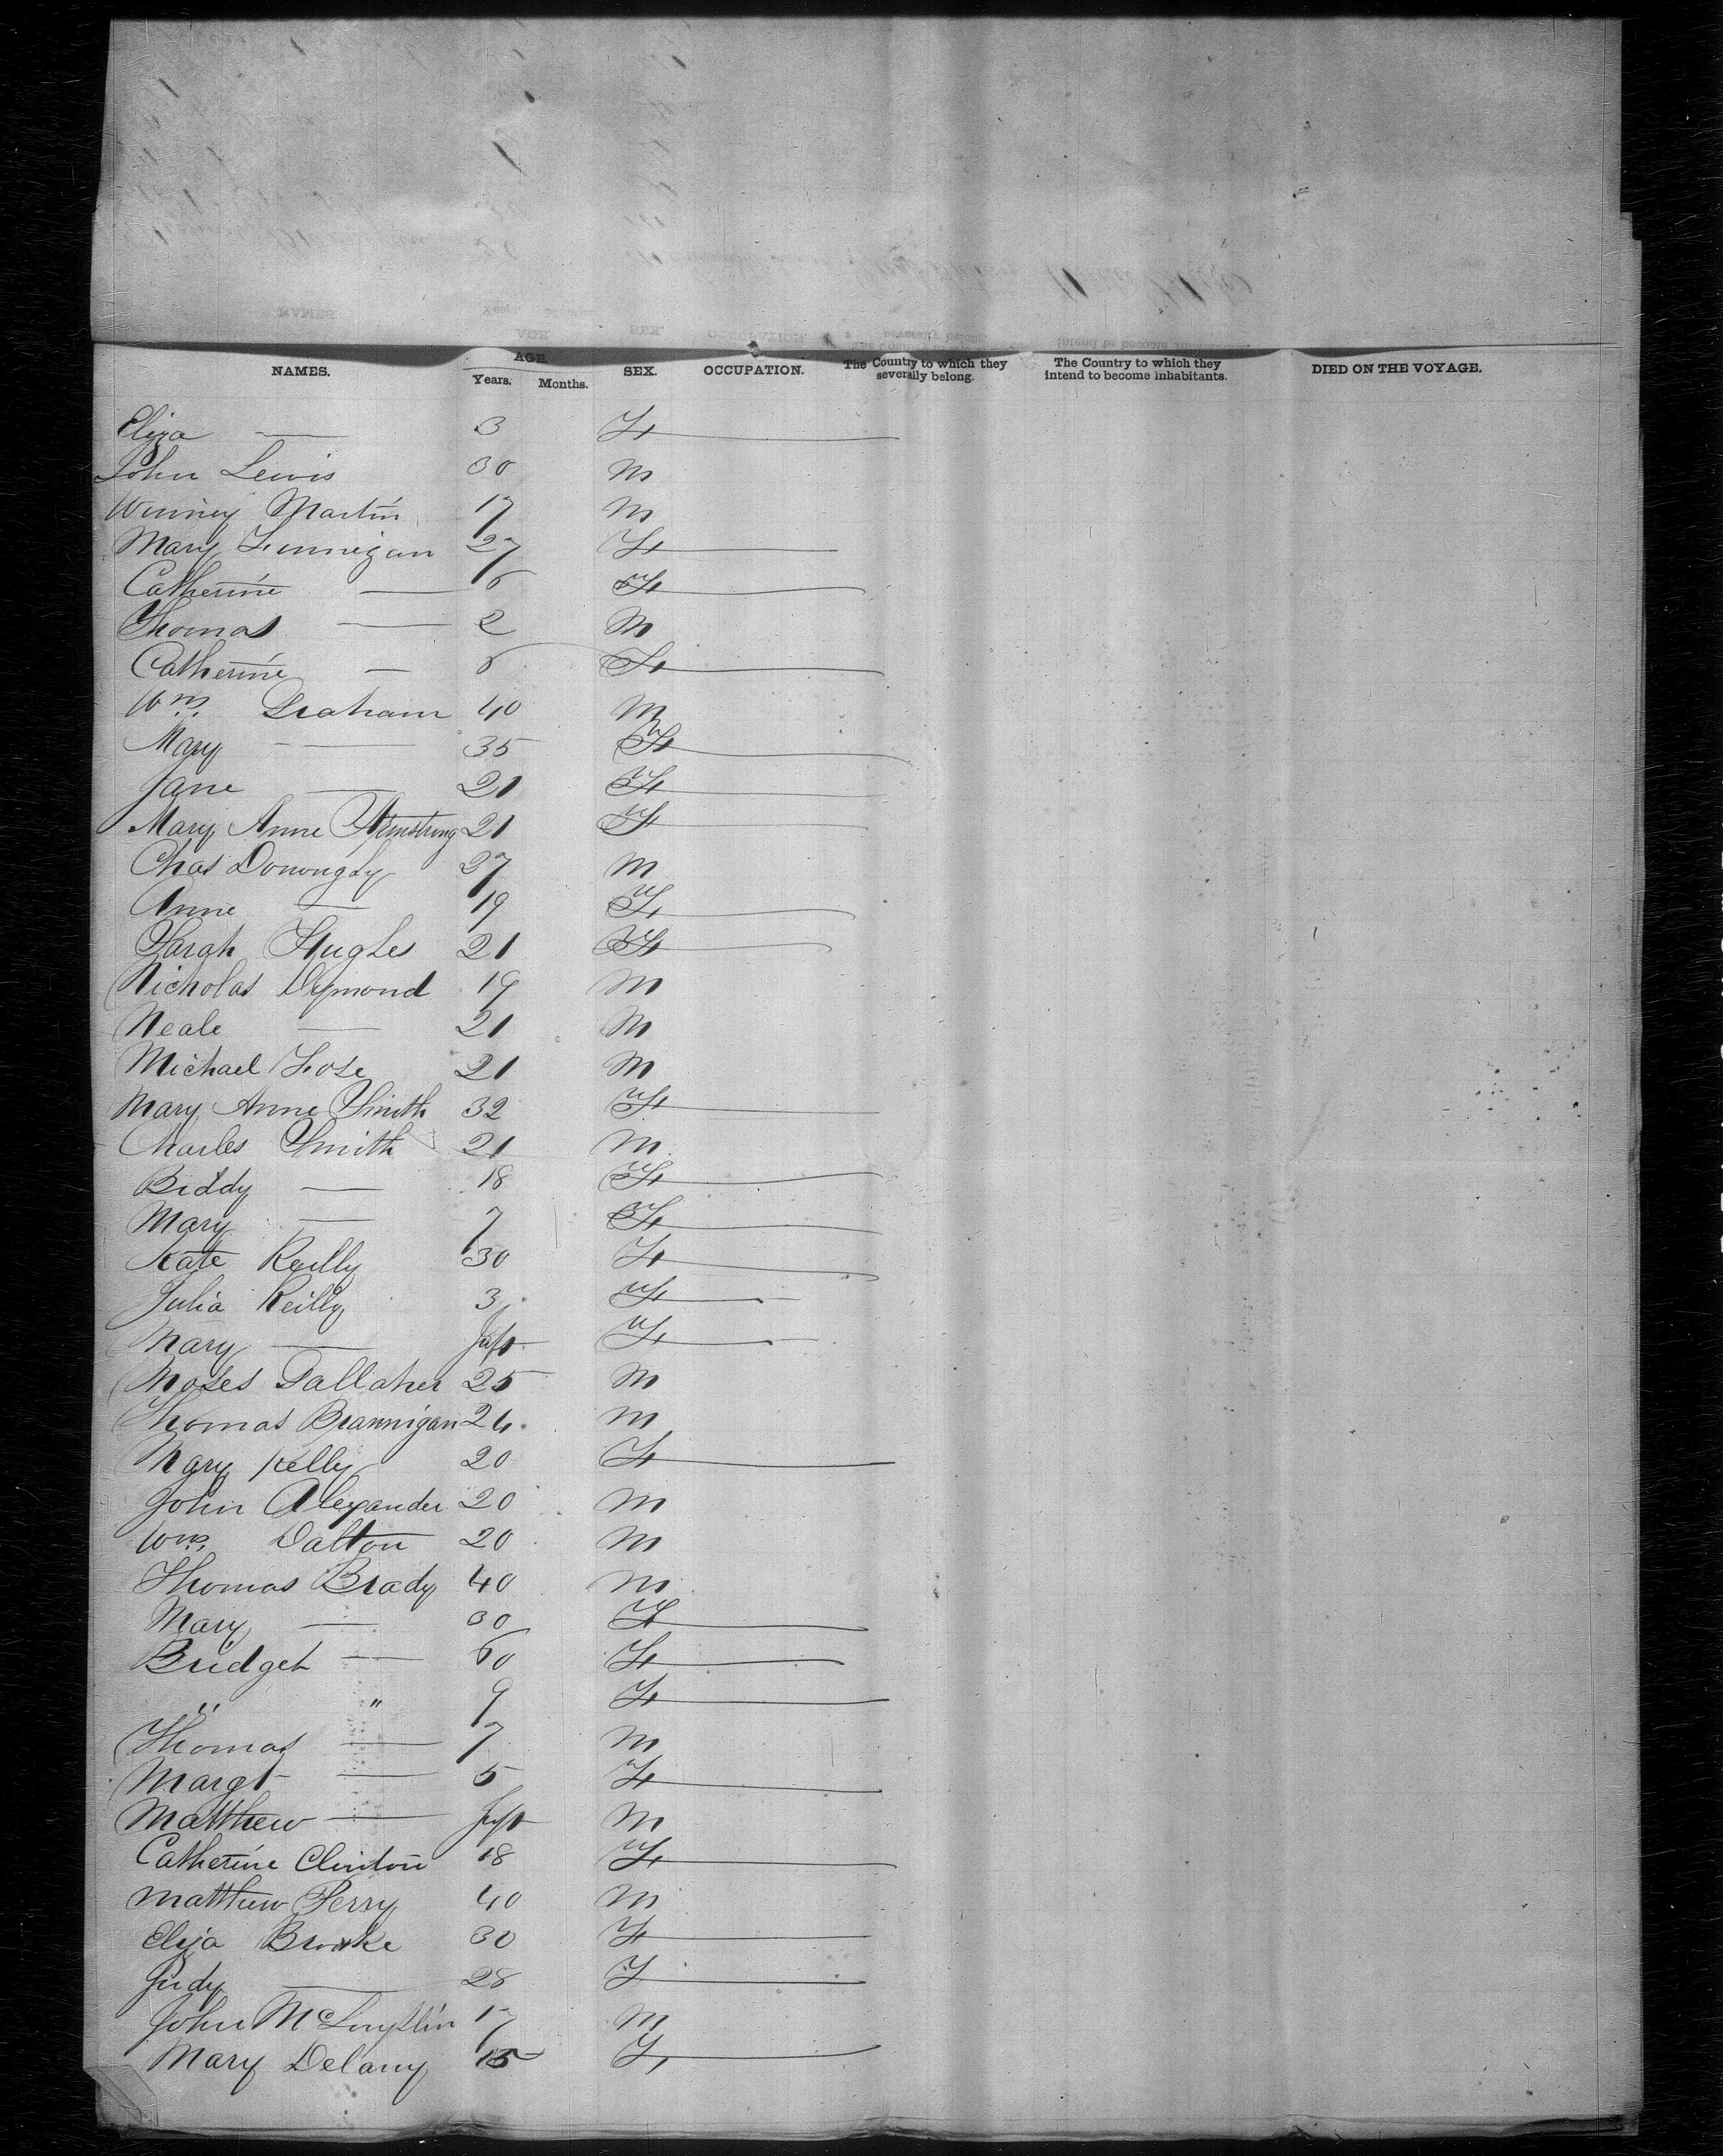 NAMES. AGE. Years. Months. SEX. OCCUPATION. The Country to which they severally belong. The Country to which they intend to become inhabitants. DIED ON THE VOYAGE.
Eliza — 3 F
John Lewis 30 M
Winney Martin 17 M
Mary Finnigan 27 F
Catherine — 6 F
Thomas — 2 M
Catherine — 6 F
Wm. Graham 40 M
Mary — 35 F
Jane — 21 F
Mary Anne Armstrong 21 F
Chas Donoughy 27 M
Anne — 19 F
Sarah Hughes 21 F
Nicholas Dymond 19 M
Neale — 21 M
Michael 21 M
Mary Anne Smith 32 F
Charles Smith 21 M
Biddy — 18 F
Mary — 7 F
Kate Reilly 30 F
Julia Reilly 3 F
Mary — Inft F
Moses Gallaher 25 M
Thomas Brannigan 24 M
Mary Kelly 20 F
John Alexander 20 M
Wm. Dalton 20 M
Thomas Brady 40 M
Mary — 30 F
Bridget — 60 F
" " 9 F
Thomas — 7 M
Margt — 5 F
Matthew — Inft M
Catherine Clinton 18 F
Matthew Perry 40 M
Eliza Brooke 30 F
Judy — 28 F
John McLoughlin 17 M
Mary Delany 15 F